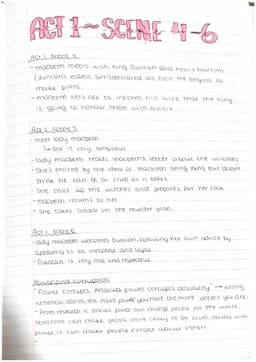 ACT 1 ~ SCENE 4-6
Act 1 Scene 4
- macbeth meets with King Duncan and hears malcom
(duncans eldest son) declared as heir. He begins to
make plans.
- macbeth sets off to inform his wife that the king
is going to honour them with a visit.
Act 1 Scene 5
- meet lady macbeth
↳ she is very ambitious
- lady macbeth reads macbeth's letter about the witches.
- She's excited by the idea of macbeth being king but doesn't
think he can be as cruel as it takes.
- She calls up the witches and prepares for her task
- macbeth returns to her
- She takes control on the murder plan.
Act 1 Scene 6
- lady macbeth welcomes Duncan, following her own advice by
appearing to be innocent and loyal.
- Duncan is very nice and respectful.
Power and corruption
- "Power corrupts. Absolute power corrupts absolutely" →
the more power you have the more you are.
- From research it shows power can change people for the worse,
can make people more likely to be cruel. mixed with
power it can make people forget about others